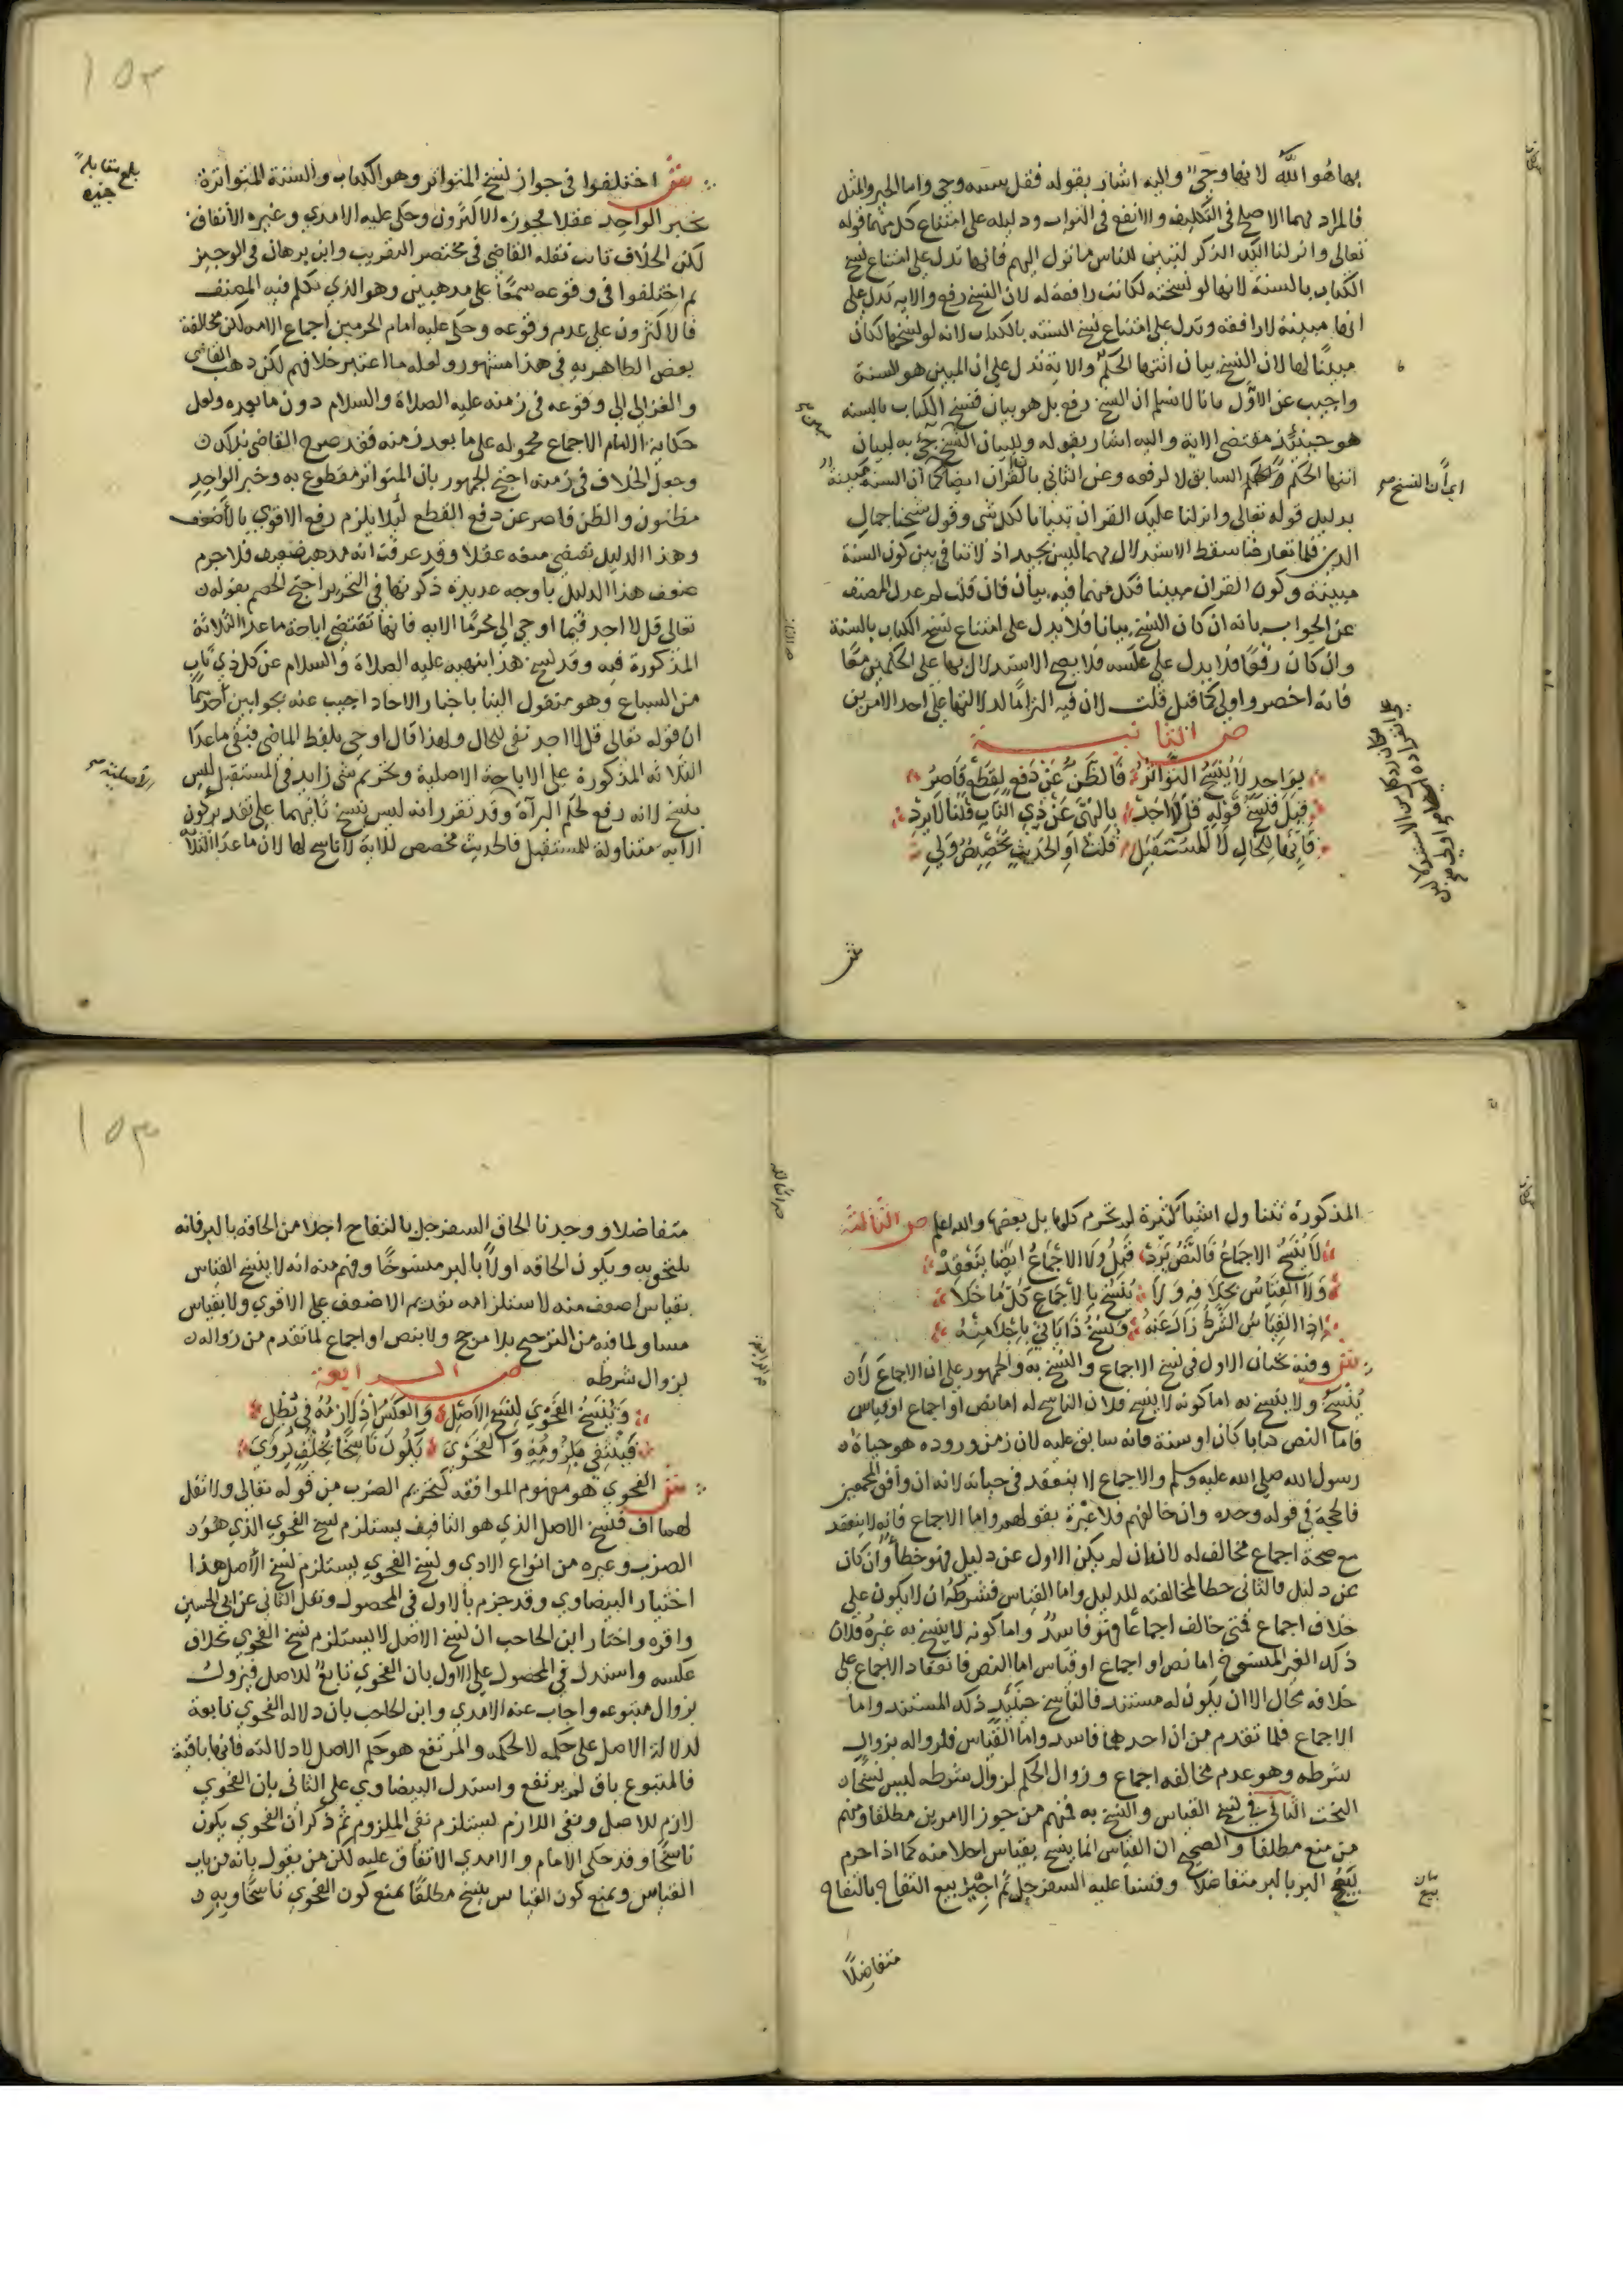 بها هو الله لانها وحي واليه اشار بقوله فقل سنته وحي واما الخير والمثل
فالمراد بهما الاصلح في التكليف والانفع في الثواب ودليله على امتناع كل منهما قوله
تعالى وانزلنا اليك الذكر لتبين للناس ما نزل اليهم فانها تدل على امتناع نسخ
الكتاب بالسنة لانها لو نسخته لكانت رافعة له لان النسخ رفع والايه تدل على
انها مبينة لا رافعه وتدل على امتناع نسخ السنه بالكتاب لانه لو نسخها لكان
مبينا لها لان النسخ بيان انتها الحكم والاية تدل على ان المبين هو السنة
واجيب عن الاول بانا لا نسلم ان النسخ رفع بل هو بيان فنسخ الكتاب بالسنه
هو حينئذ مقتضى الاية واليه اشار بقوله وللبيان النسخ جئ به لبيان
انتها الحكم السابق لا لرفعه وعن الثاني بان القران ايضا كما ان السنة مبينة
اي ان النسخ صح
بدليل قوله تعالى وانزلنا عليك القران تبيانا لكل شي وقول شيخنا جمال
الدين فلما تعارضا سقط الاستدلال بهما ليس بجيد اذ لا تنافي بين كون السنة
مبينة وكون القران مبينا فكل منهما فيه بيان فان قلت لم عدل المصنف
عن الجواب بانه ان كان النسخ بيانا فلا يدل على امتناع نسخ الكتاب بالسنة
وان كان رفعا فلا يدل على عكسه فلا يصح الاستدلال بها على الحكمين معا
فانه اخصر واولى كما قيل قلت لان فيه التزاما لدلالتها على احد الامرين
ص الثانية
بواحد لا ينسخ التواتر فالظن عن دفع لقطع قاصر
قيل فنسخ قوله قل لا اجد بالنهي عن ذي الناب قلنا لا يرد
فانها للحال لا للمستقبل قلت او الحديث تخصيص ولي
ش
١٥٢
بلغ مقابلة
ش اختلفوا في جواز نسخ المتواتر وهو الكتاب والسنة المتواترة
بخبر الواحد عقلا فجوزه الاكثرون وحكى عليه الامدي وغيره الاتفاق
لكن الخلاف ثابت نقله القاضي في مختصر التقريب وابن برهان في الوجيز
ثم اختلفوا في وقوعه سمعا على مذهبين وهو الذي تكلم فيه المصنف
فالاكثرون على عدم وقوعه وحكى عليه امام الحرمين اجماع الامه لكن مخالفة
بعض الظاهريه في هذا مشهور ولعله ما اعتبر خلافهم لكن ذهب القاضي
والغزالي الى وقوعه في زمنه عليه الصلاة والسلام دون ما بعده ولعل
حكاية الامام الاجماع محموله على ما بعد زمنه فقد صرح القاضي بذلك
وجعل الخلاف في زمنه احتج الجمهور بان المتواتر مقطوع به وخبر الواحد
مظنون والظن قاصر عن دفع القطع لئلا يلزم رفع الاقوي بالاضعف
وهذا الدليل يقتضي منعه عقلا وقد عرفت انه مذهب ضعيف فلا جرم
ضعف هذا الدليل باوجه عديدة ذكرتها في التحرير احتج الخصم بقوله
تعالى قل لا اجد فيما اوحي الي محرما الايه فانها تقتضي اباحة ما عدا الثلاثة
المذكورة فيه وقد نسخ هذا بنهيه عليه الصلاة والسلام عن كل ذي ناب
من السباع وهو منقول الينا باخبار الاحاد اجيب عنه بجوابين احدهما
ان قوله تعالى قل لا اجد نفى للحال ولهذا قال اوحي بلفظ الماضي فبقي ما عدا
الثلاثه المذكورة على الاباحة الاصلية وتحريم شي زايد في المستقبل ليس
بنسخ لانه رفع لحكم البراة الاصلية صح وقد تقرر انه ليس بنسخ ثانيهما على تقدير كون
الايه متناولة للمستقبل فالحديث مخصص للاية لا ناسخ لها لان ما عدا الثلاثة
المذكورة تتناول اشيا كثيرة لم تحرم كلها بل بعضها والله اعلم ص الثالثة
لا ينسخ الاجماع فالنص يرد قبل ولا الاجماع ايضا ينعقد
ولا القياس بخلافه ولا ينسخ بالاجماع كل ما خلا
اذا القياس الشرط زال عنه ونسخ ذا ياتي باجلا منه
ش وفيه بحثان الاول في نسخ الاجماع والنسخ به والجمهور على ان الاجماع لا
ينسخ ولا ينسخ به اما كونه لا ينسخ فلان الناسخ له اما نص او اجماع او قياس
فاما النص كتابا كان او سنة فانه سابق عليه لان زمن وروده هو حياة
رسول الله صلى الله عليه وسلم والاجماع لا ينعقد في حياته لانه ان وافق المجمعين
فالحجة في قوله وحده وان خالفهم فلا عبرة بقولهم واما الاجماع فانه لا ينعقد
مع صحة اجماع مخالف له لانه ان لم يكن الاول عن دليل فهو خطا وان كان
عن دليل فالثاني خطا لمخالفته للدليل واما القياس فشرطه ان لا يكون على
خلاف اجماع فمتى خالف اجماعا فهو فاسد واما كونه لا ينسخ به غيره فلان
ذلك الغير المنسوخ اما نص او اجماع او قياس اما النص فانعقاد الاجماع على
خلافه محال الا ان يكون له مستند فالناسخ حينئذ ذلك المستند واما
الاجماع فلما تقدم من ان احدهما فاسد واما القياس فلزواله بزوال
شرطه وهو عدم مخالفه اجماع وزوال الحكم لزوال شرطه ليس نسخا
البحث الثاني في نسخ القياس والنسخ به فمنهم من جوز الامرين مطلقا ومنهم
من منع مطلقا والصحيح ان القياس انما ينسخ بقياس اجلا منه كما اذا حرم
بيع البر بالبر متفاضلا وقسنا عليه السفرجل ثم اجيز بيع التفاح بالتفاح
بيان
بيع
متفاضلا
١٥٣
متفاضلا ووجدنا الحاق السفرجل بالتفاح اجلا من الحاقه بالبر فانه
يلتحق به ويكون الحاقه اولا بالبر منسوخا وفهم منه انه لا ينسخ القياس
بقياس اضعف منه لاستلزامه تقديم الاضعف على الاقوي ولا بقياس
مساو لما فيه من الترجيح بلا مرجح ولا بنص او اجماع لما تقدم من زواله
بزوال شرطه
ص الرابعة
وينسخ الفحوى لنسخ الاصل والعكس اذ لازمه في بطل
فينتفي ملزومه والفحوى يكون ناسخا بخلف يروى
ش الفحوى هو مفهوم الموافقه كتحريم الضرب من قوله تعالى ولا تقل
لهما اف فنسخ الاصل الذي هو التافيف يستلزم نسخ الفحوى الذي هو
الضرب وغيره من انواع الاذى ونسخ الفحوى يستلزم نسخ الاصل هذا
اختيار البيضاوي وقد جزم بالاول في المحصول ونقل الثاني عن ابي الحسين
واقره واختار ابن الحاجب ان نسخ الاصل لا يستلزم نسخ الفحوى بخلاف
عكسه واستدل في المحصول على الاول بان الفحوى تابع للاصل فيزول
بزوال متبوعه واجاب عنه الامدي وابن الحاجب بان دلاله الفحوى تابعة
لدلالة الاصل على حكمه لا لحكمه والمرتفع هو حكم الاصل لا دلالته فانها باقية
فالمتبوع باق لم يرتفع واستدل البيضاوي على الثاني بان الفحوى
لازم للاصل ونفي اللازم يستلزم نفي الملزوم ثم ذكر ان الفحوى يكون
ناسخا وقد حكى الامام والامدي الاتفاق عليه لكن من يقول بانه من باب
القياس ويمنع كون القياس ينسخ مطلقا يمنع كون الفحوى ناسخا وبه